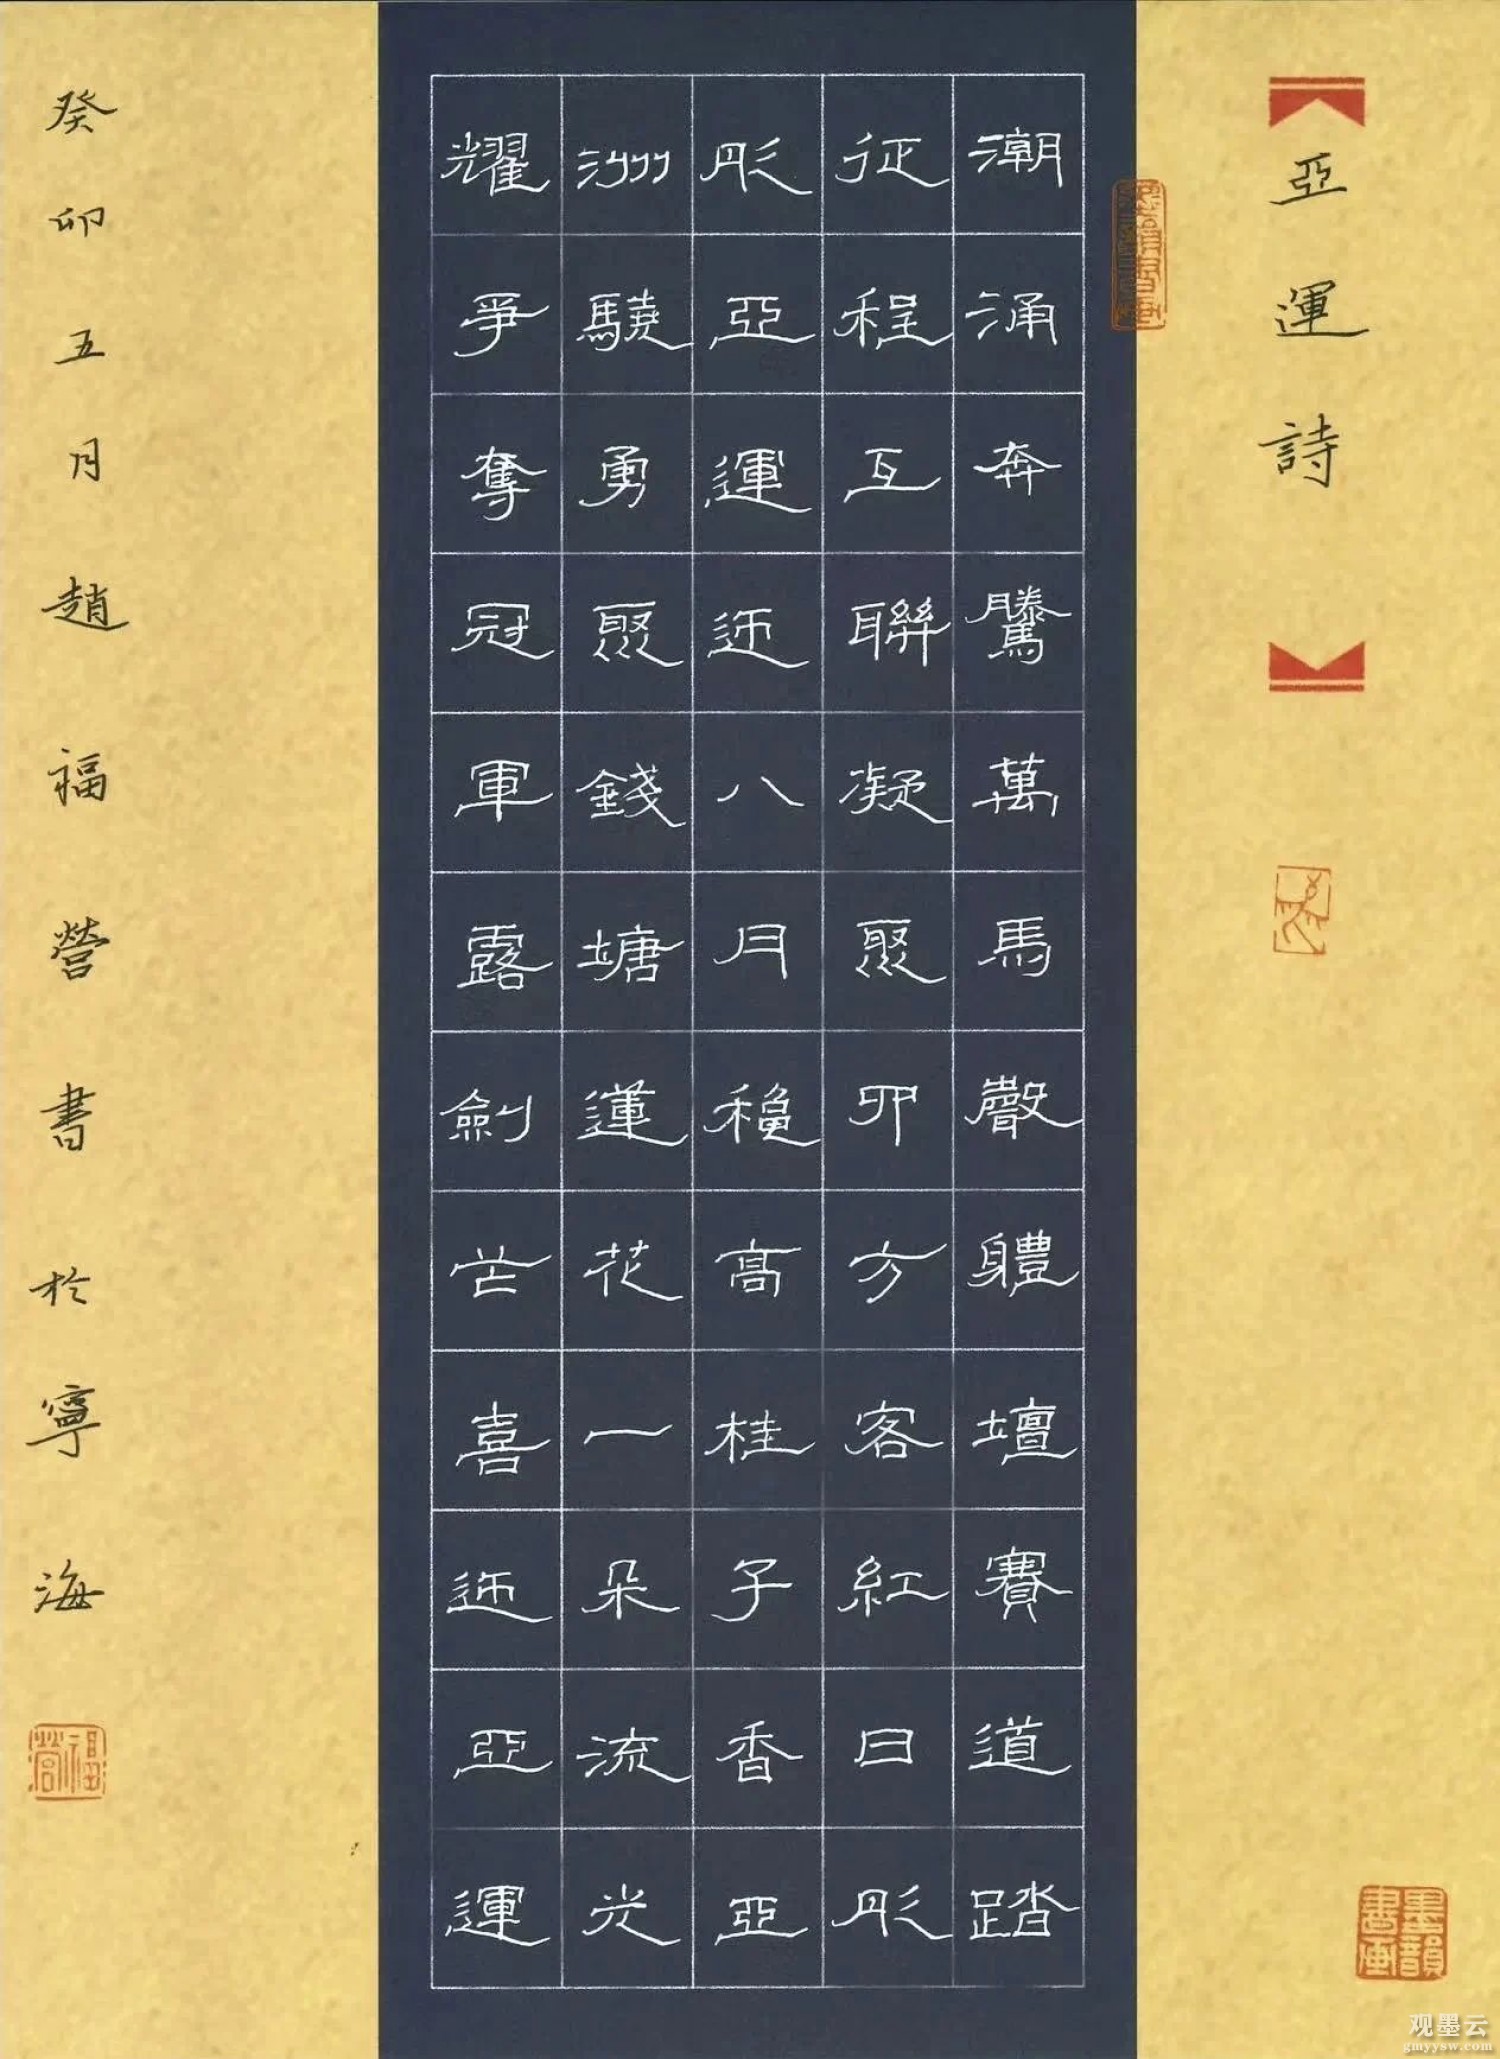 亞運詩
潮涌奔騰萬馬聲軆壇賽道踏
征程互聯凝聚四方客紅日彤
彤亞運迎八月穐高桂子香亞
洲驍勇聚錢塘蓮花一朵流光
耀爭奪冠軍露劍芒喜迎亞運
癸卯五月趙福營書於寧海
福營
墨韻書畫
观墨云
gmyysw.com